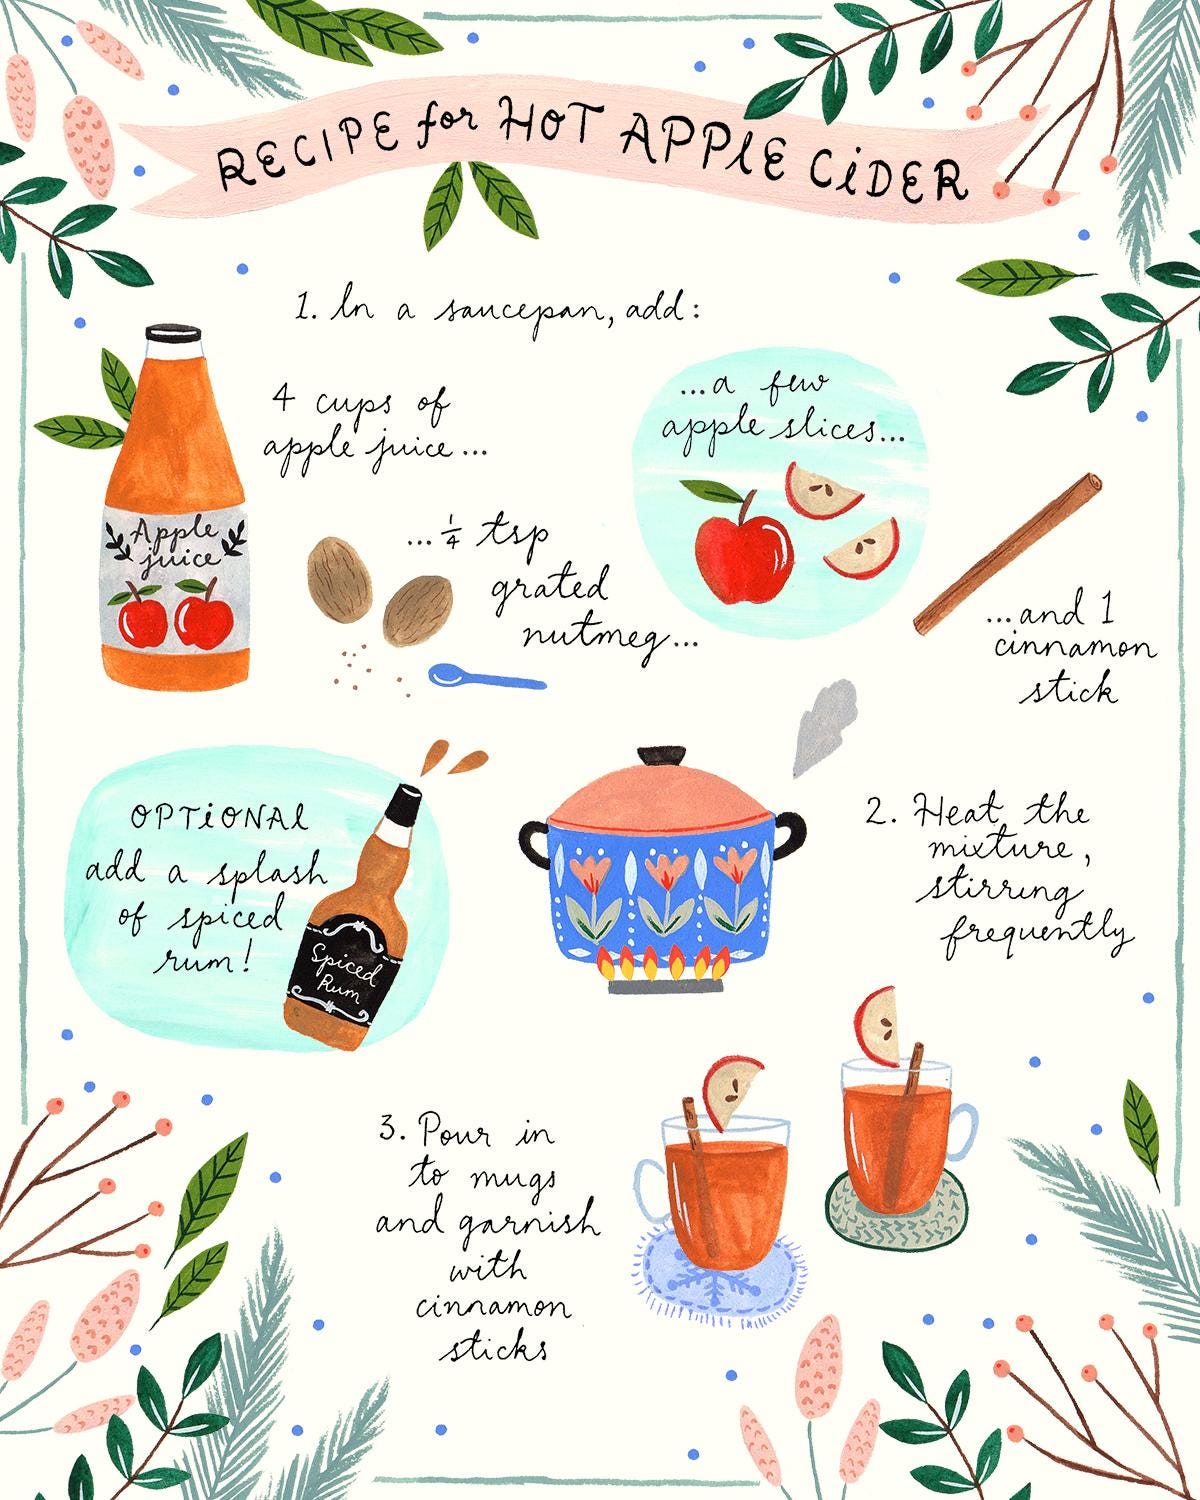 RECIPE for HOT APPLE CiDER
1. In a saucepan, add:
4 cups of
apple juice...
Apple
juice
...¼ tsp
grated
nutmeg...
...a few
apple slices...
...and 1
cinnamon
stick
OPTiONAl
add a splash
of spiced
rum!
Spiced
Rum
2. Heat the
mixture,
stirring
frequently
3. Pour in
to mugs
and garnish
with
cinnamon
sticks